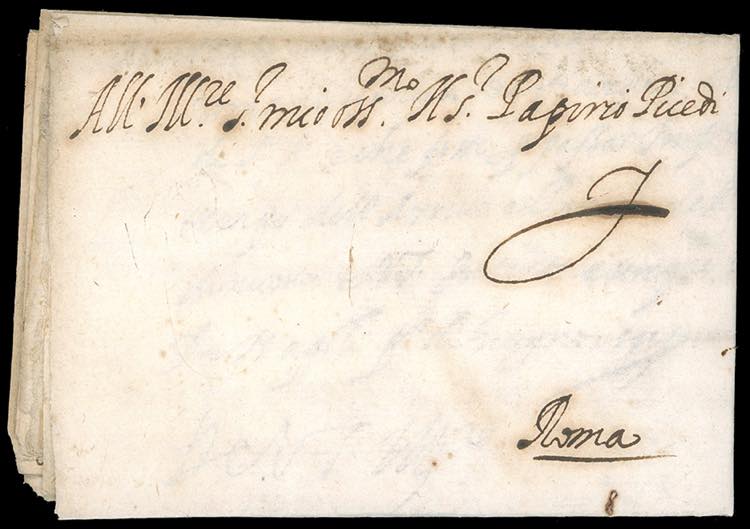 All. Ill.re s.r mio oss.mo Il s.r Papirio Picedi
Roma
8